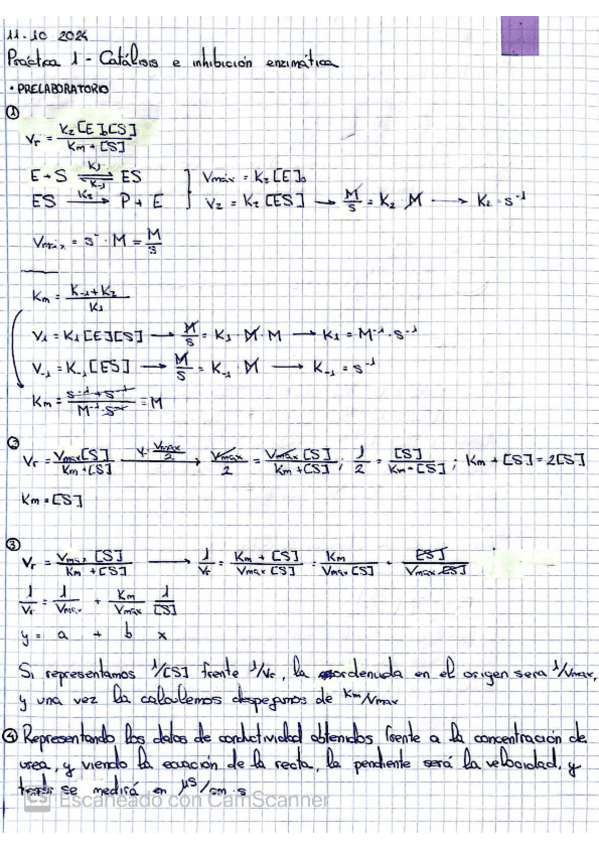 11-10 2024
Práctica 1 - Catálisis e inhibición enzimática
• PRELABORATORIO
①
Vr = K2[E]0[S] / Km + [S]
E + S ⇌ (K1, K-1) ES } Vmáx = K2[E]0
ES → (K2) P + E } V2 = K2[ES] → M/s = K2 · M → K2 = s⁻¹
Vmáx = s⁻ · M = M/s
Km = K-1 + K2 / K1
V1 = K1[E][S] → M/s = K1 · M · M → K1 = M⁻¹ · s⁻¹
V-1 = K-1[ES] → M/s = K-1 · M → K-1 = s⁻¹
Km = s⁻¹ + s⁻¹ / M⁻¹ · s⁻¹ = M
②
Vr = Vmax[S] / Km + [S] → (V = Vmax/2) Vmax/2 = Vmax[S] / Km + [S] ; 1/2 = [S] / Km + [S] ; Km + [S] = 2[S]
Km = [S]
③
Vr = Vmax [S] / Km + [S] → 1/Vr = Km + [S] / Vmax [S] = Km / Vmax [S] + [S] / Vmax [S]
1/Vr = 1/Vmax + Km/Vmax 1/[S]
y = a + b x
Si representamos 1/[S] frente 1/Vr, la ordenada en el origen sera 1/Vmax,
y una vez la calculemos despegamos de Km/Vmax
④ Representando los datos de conductividad obtenidos frente a la concentración de
urea, y viendo la ecuación de la recta, la pendiente será la velocidad, y
se medirá en µS/cm · s
CS Escaneado con CamScanner